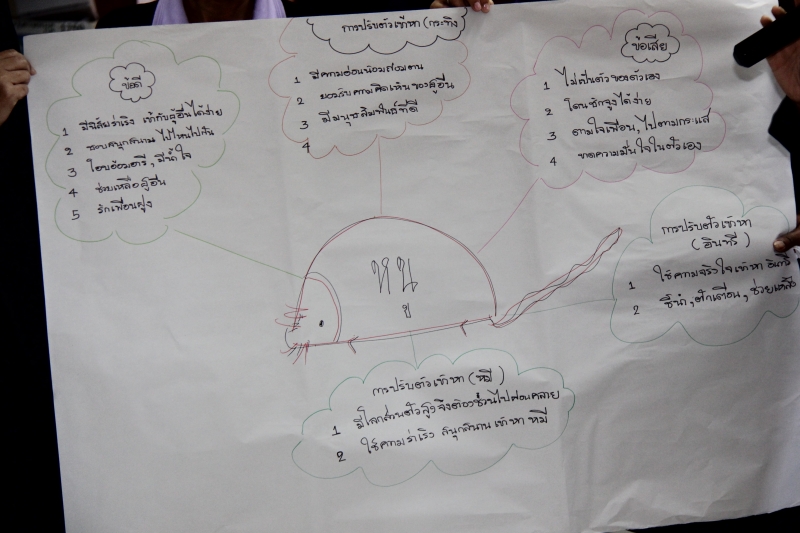 ข้อดี
1 มีนิสัยร่าเริง เข้ากับผู้อื่นได้ง่าย
2 ชอบสนุกสนาน ไปไหนไปกัน
3 โอบอ้อมอารี, มีน้ำใจ
4 ช่วยเหลือผู้อื่น
5 รักเพื่อนฝูง
การปรับตัวเข้าหา (กระทิง
1 มีความอ่อนน้อมถ่อมตน
2 ยอมรับความคิดเห็นของผู้อื่น
3 มีมนุษสัมพันธ์ที่ดี
4
ข้อเสีย
1 ไม่เป็นตัวของตัวเอง
2 โดนชักจูงได้ง่าย
3 ตามใจเพื่อน, ไปตามกระแส
4 ขาดความมั่นใจในตัวเอง
หนู
การปรับตัวเข้าหา
(อินทรี)
1 ใช้ความจริงใจเข้าหา อินทรี
2 ชี้นำ, ตักเตือน, ช่วยเหลือ
การปรับตัวเข้าหา (หมี)
1 มีโลกส่วนตัวสูงจึงต้องชวนไปผ่อนคลาย
2 ใช้ความร่าเริง สนุกสนาน เข้าหา หมี